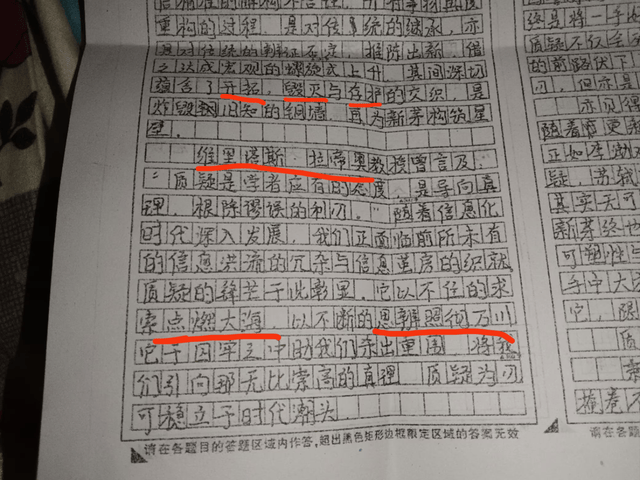 重构的过程，是对传统的继承，亦
是对传统的辩证不定，推陈出新，借
之达成宏观的螺旋式上升，其间深切
蕴含了开拓、毁灭与存护的交织，是
炸毁铜旧知的铜墙，再为新芽构筑星
空。
维里塔斯·拉帝奥教授曾言及：
“质疑是学者应有的态度，是导向真
理，根除谬误的利刃。”随着信息化
时代深入发展，我们正面临前所未有
的信息洪流的冗杂与信息茧房的织就，
质疑的锋芒于此彰显。它以不住的求
索点燃大海，以不断的思辨照彻万川
它于囚牢之中助我们杀出重围，将我
们引向那无比崇高的真理。质疑为刃
可稳立于时代潮头。
请在各题目的答题区域内作答，超出黑色矩形边框限定区域的答案无效
终是将一手
质疑不仅
的前路伏下
，但亦是
亦见得
随着席更
正如李
疑，苏轼
其实无可
新芽终也
可塑性与
手中大
它，
质
掩卷不
请在各